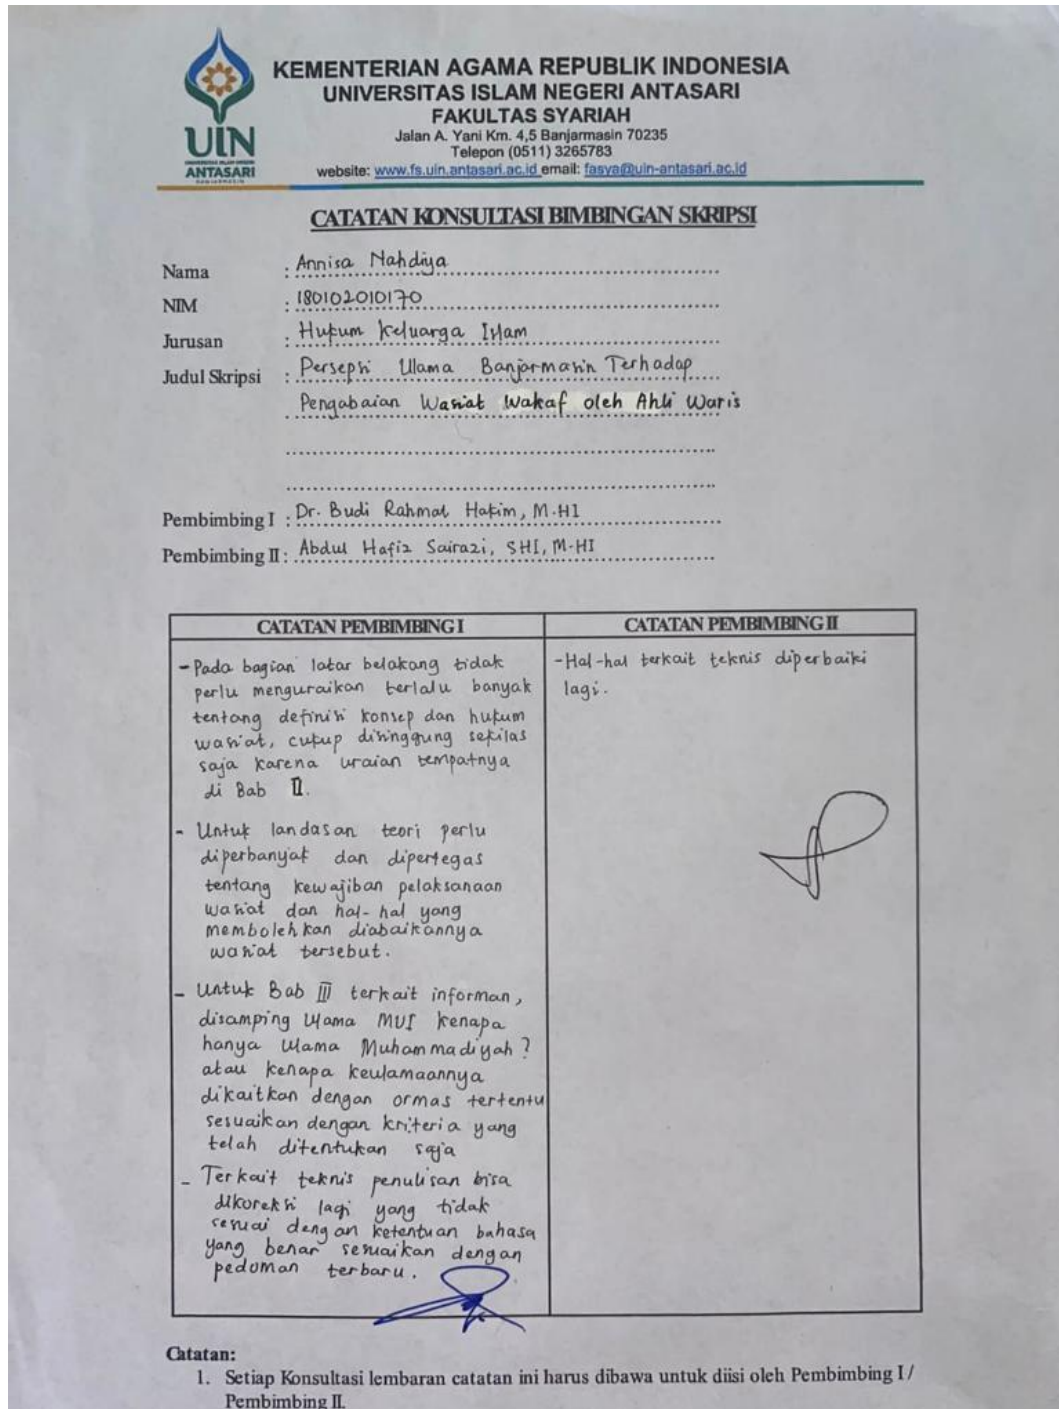 KEMENTERIAN AGAMA REPUBLIK INDONESIA
UNIVERSITAS ISLAM NEGERI ANTASARI
FAKULTAS SYARIAH
Jalan A. Yani Km. 4,5 Banjarmasin 70235
Telepon (0511) 3265783
website: www.fs.uin.antasari.ac.id email: fasya@uin-antasari.ac.id
UIN
UNIVERSITAS ISLAM NEGERI
ANTASARI
BANJARMASIN
CATATAN KONSULTASI BIMBINGAN SKRIPSI
Nama : Annisa Nahdiya
NIM : 180102010170
Jurusan : Hukum Keluarga Islam
Judul Skripsi : Persepsi Ulama Banjarmasin Terhadap
Pengabaian Wasiat Wakaf oleh Ahli Waris
Pembimbing I : Dr. Budi Rahmat Hakim, M.HI
Pembimbing II : Abdul Hafiz Sairazi, SHI, M.HI
CATATAN PEMBIMBING I
- Pada bagian latar belakang tidak
perlu menguraikan terlalu banyak
tentang definisi konsep dan hukum
wasiat, cukup disinggung sekilas
saja karena uraian tempatnya
di Bab II.
- Untuk landasan teori perlu
diperbanyak dan dipertegas
tentang kewajiban pelaksanaan
wasiat dan hal-hal yang
membolehkan diabaikannya
wasiat tersebut.
- Untuk Bab III terkait informan,
disamping Ulama MUI kenapa
hanya Ulama Muhammadiyah?
atau kenapa keulamaannya
dikaitkan dengan ormas tertentu
sesuaikan dengan kriteria yang
telah ditentukan saja
- Terkait teknis penulisan bisa
dikoreksi lagi yang tidak
sesuai dengan ketentuan bahasa
yang benar sesuaikan dengan
pedoman terbaru.
CATATAN PEMBIMBING II
- Hal-hal terkait teknis diperbaiki
lagi.
Catatan:
1. Setiap Konsultasi lembaran catatan ini harus dibawa untuk diisi oleh Pembimbing I /
Pembimbing II.